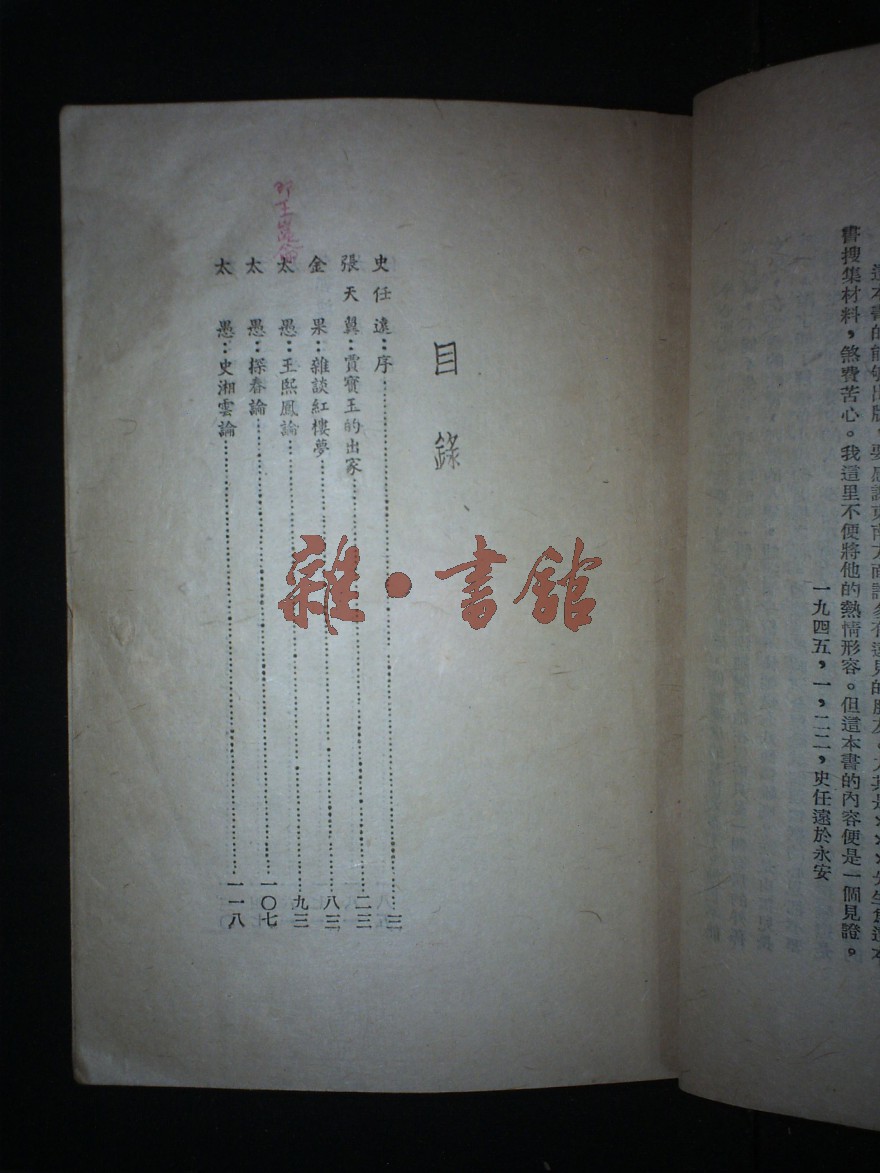 這本書的能够出版，要感謝東南方面許多有遠見的朋友。尤其是×××先生爲這本
書搜集材料，煞費苦心。我這里不便將他的熱情形容。但這本書的內容便是一個見證。
一九四五，一，二二，史任遠於永安
目錄
史任遠：序……三
張天翼：賈寶玉的出家……二三
金果：雜談紅樓夢……八三
太愚：王熙鳳論……九三
太愚：探春論……一〇七
太愚：史湘雲論……一一八
即王崑崙
雜·書館